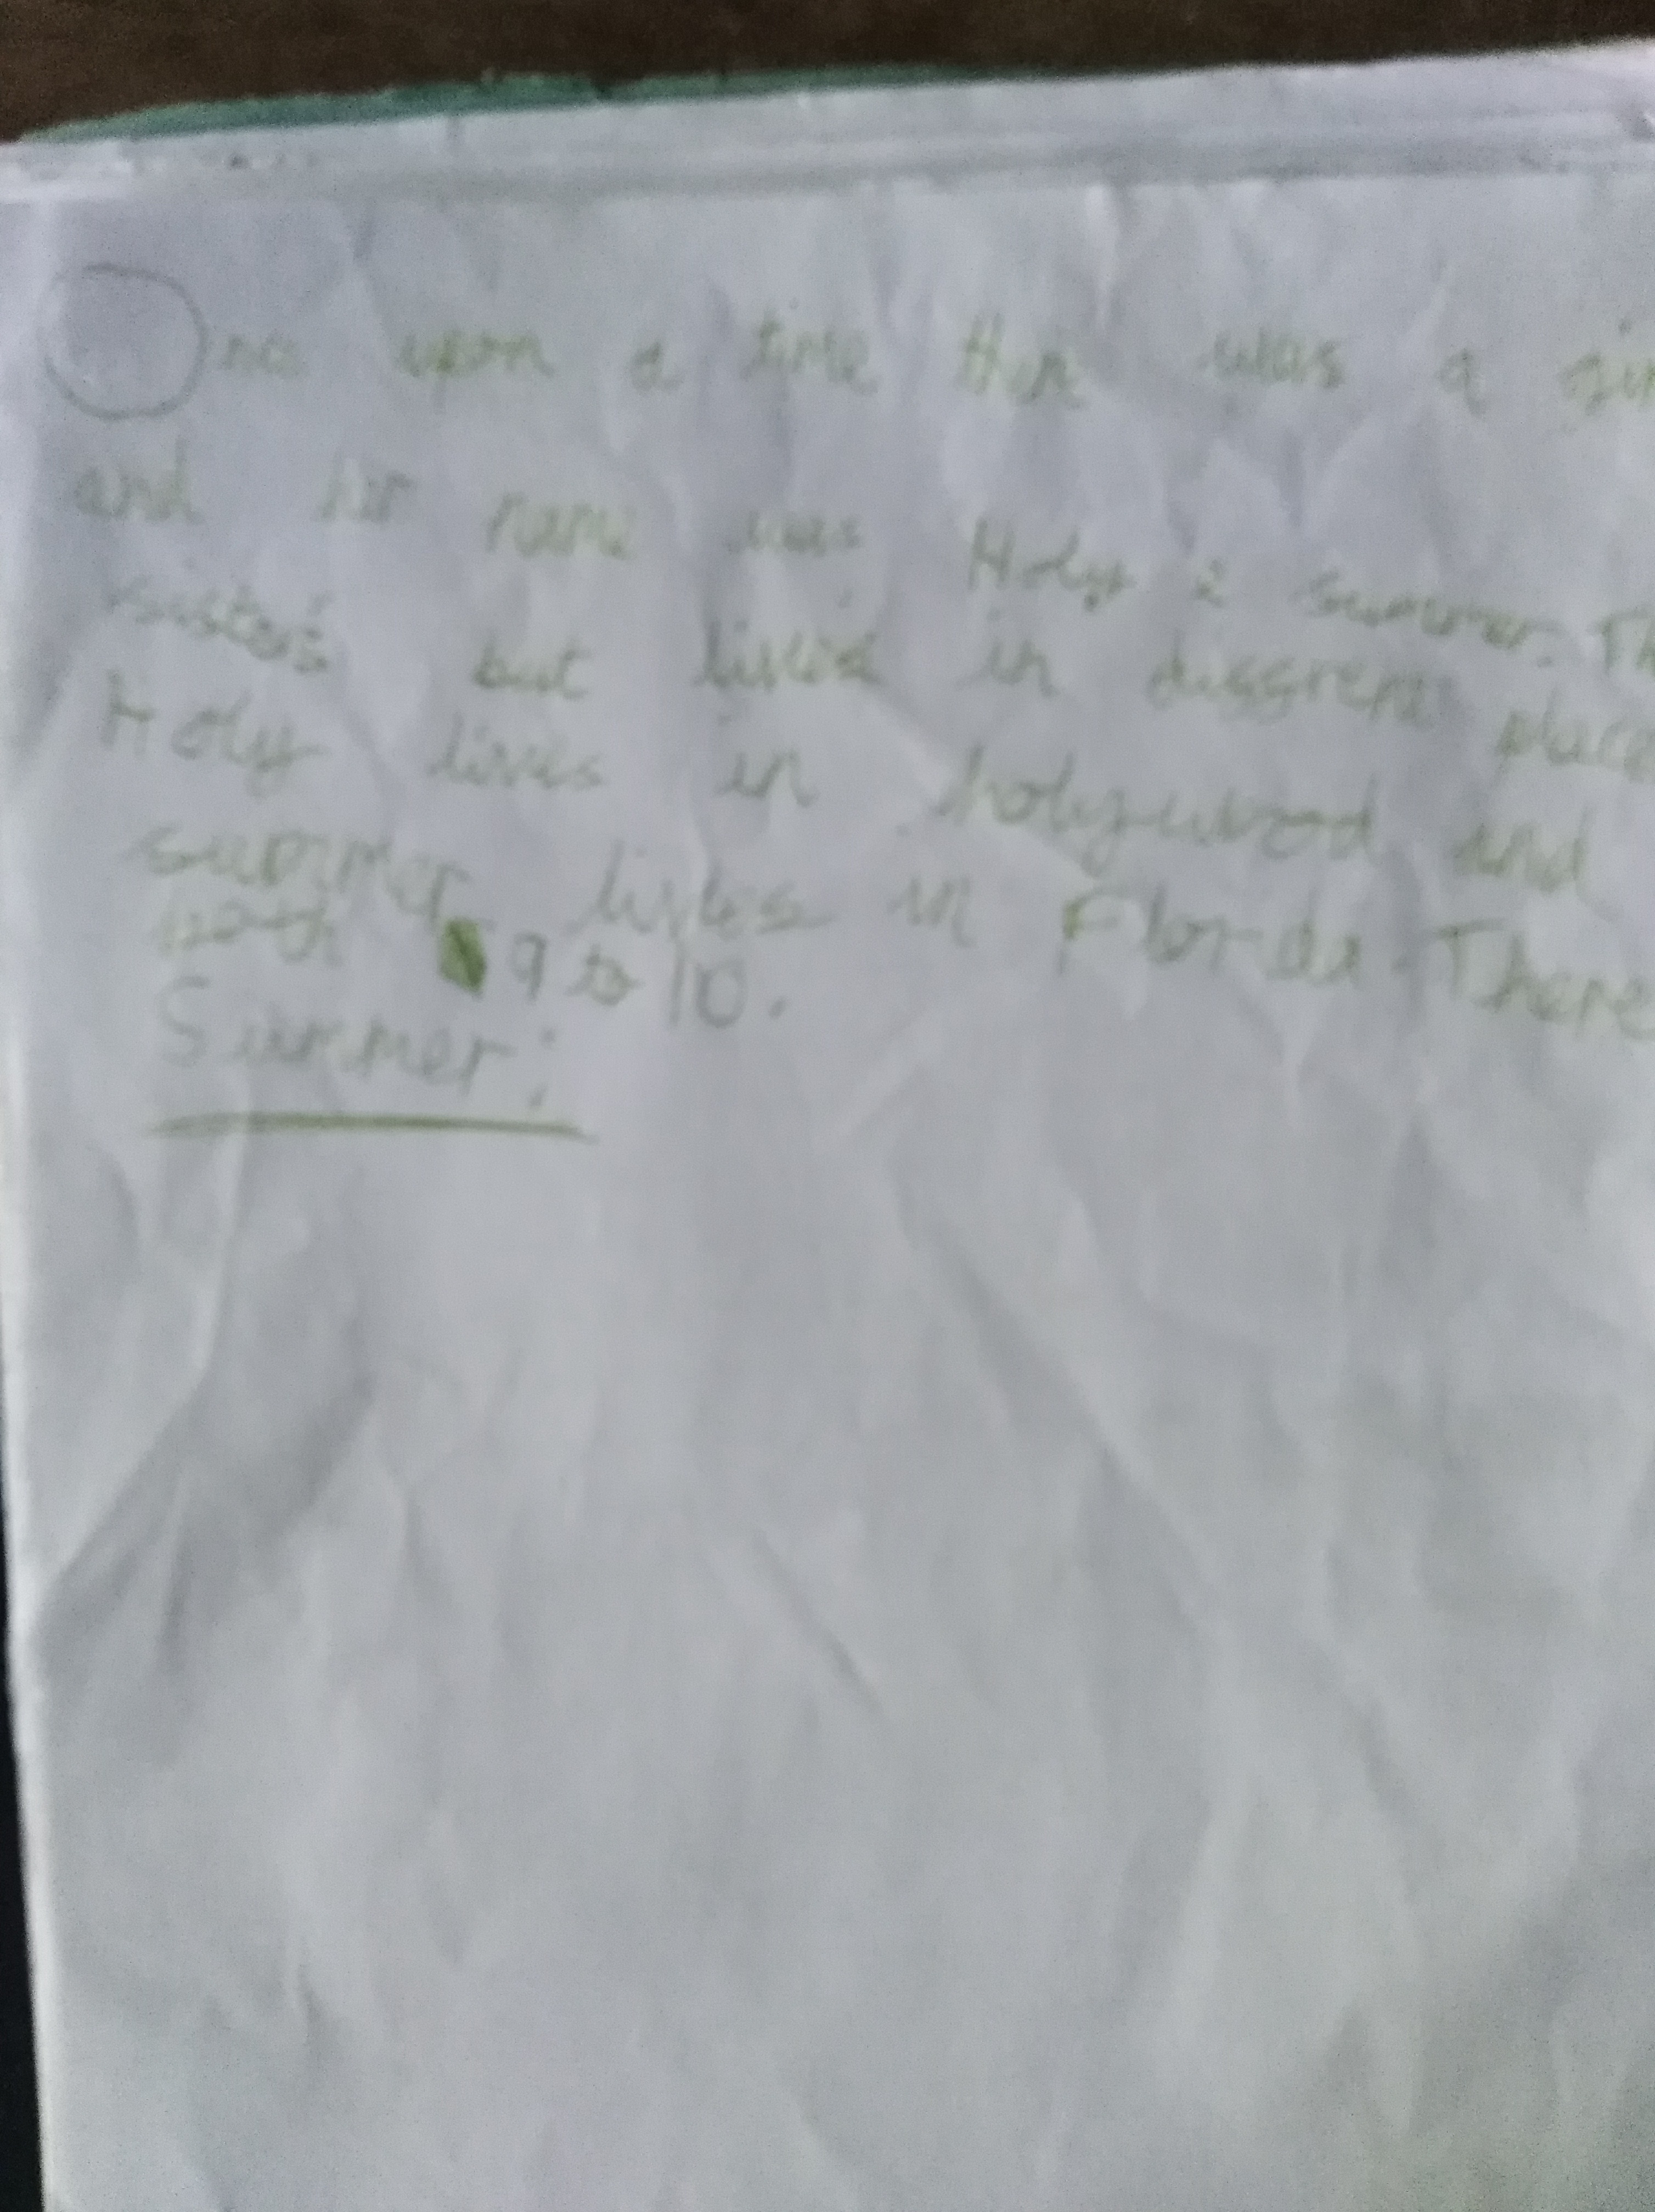 Once upon a time ther was a
and her name was Holy & summer.
sister's but lives in dissrent place
Holy lives in holywood and
summer lives in Florda. There
both 9 to 10.
Summer: